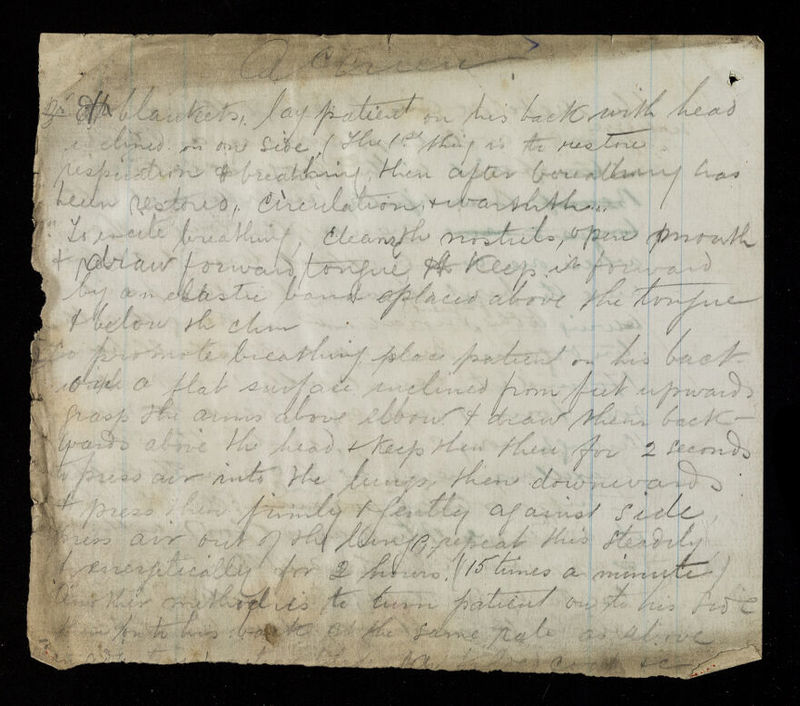 blankets, lay patient on his back with head
inclined on one side, (The 1st thing is to restore
respiration & breathing, then after breathing has
been restored, circulation, & warmth
To excite breathing, cleanse nostrils, open mouth
& draw forward tongue & keep it forward
by an elastic band placed above the tongue
& below the chin
To promote breathing place patient on his back
on a flat surface inclined from feet upwards
grasp the arms above elbow & draw them back-
wards above the head & keep them there for 2 seconds
press air into the lungs, then downwards
& press them firmly & gently against side,
press air out of the lungs, repeat this steadily
& energetically for 2 hours. (15 times a minute)
Another method is to turn patient on to his side
then on to his back at the same rate as above